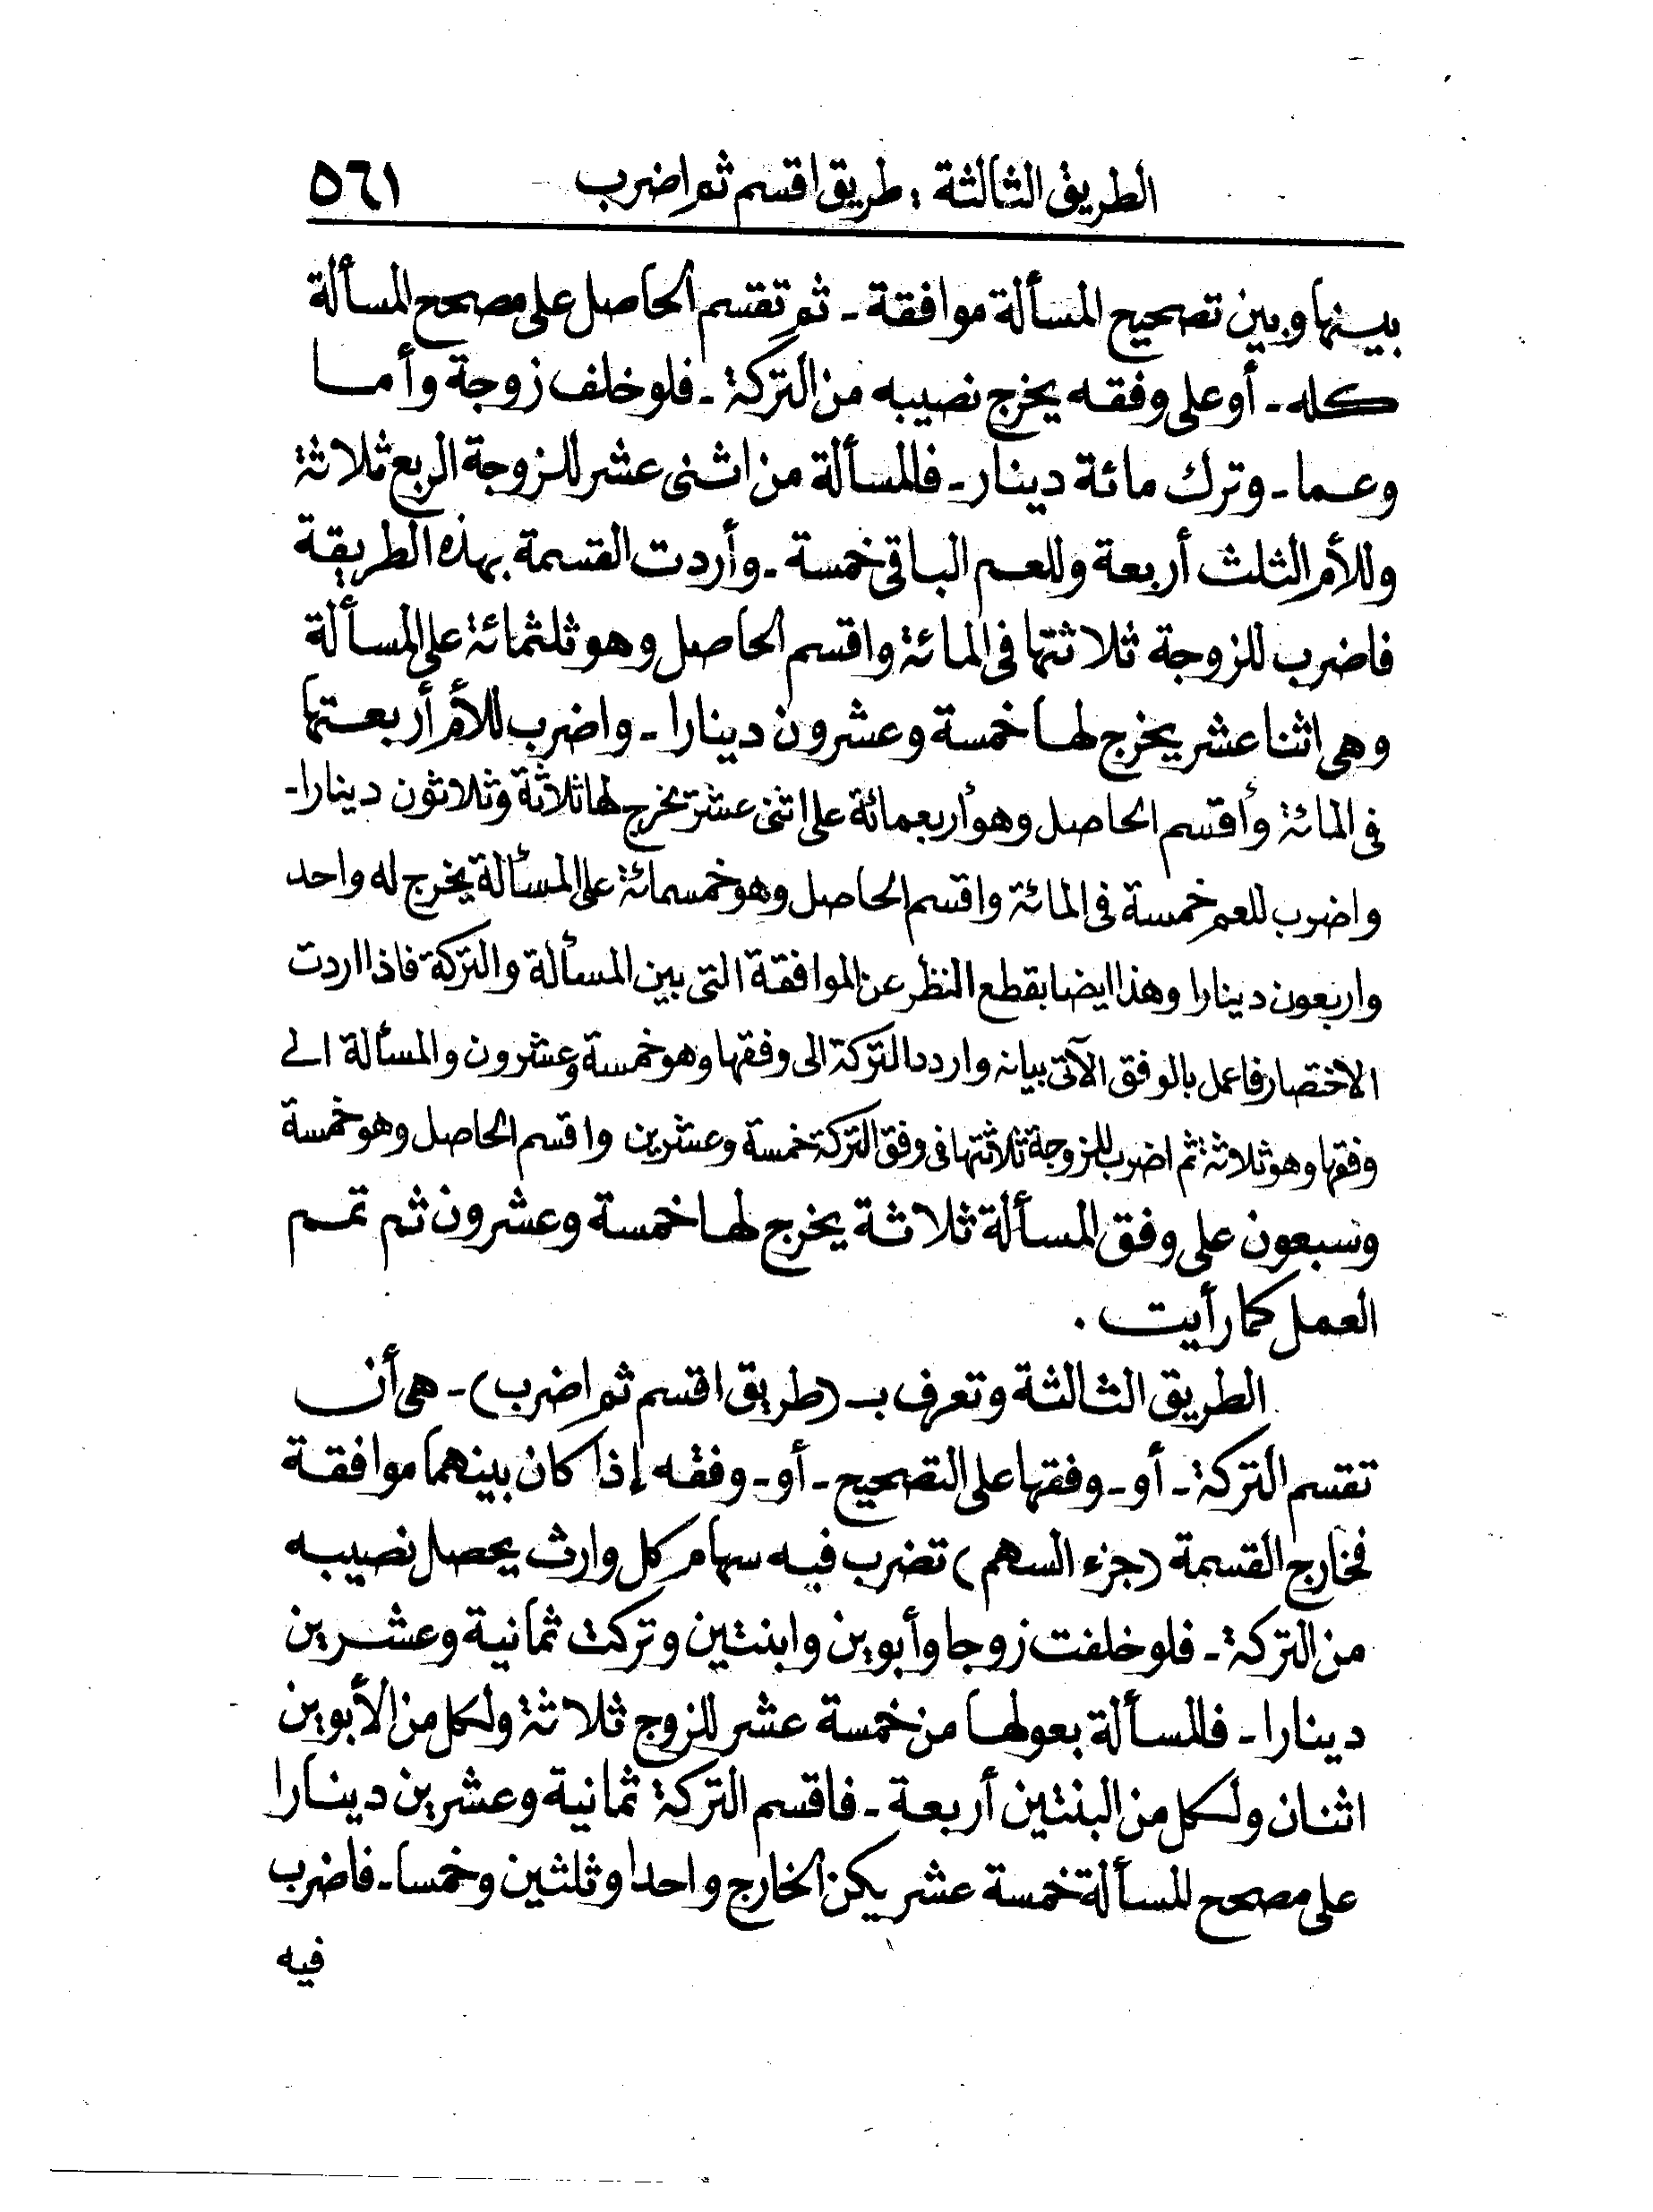 الطريق الثالثة : طريق اقسم ثم اضرب ٥٦١
بينها وبين تصحيح المسألة موافقة ـ ثم تقسم الحاصل على مصحح المسألة
كله ـ أو على وفقه يخرج نصيبه من التركة ـ فلو خلف زوجة وأما
وعما ـ وترك مائة دينار ـ فالمسألة من اثنى عشر للزوجة الربع ثلاثة
وللأم الثلث أربعة وللعم الباقى خمسة ـ وأردت القسمة بهذه الطريقة
فاضرب للزوجة ثلاثتها فى المائة واقسم الحاصل وهو ثلثمائة على المسألة
وهى اثنا عشر يخرج لها خمسة وعشرون دينارا ـ واضرب للأم أربعتها
فى المائة وأقسم الحاصل وهو أربعمائة على اثنى عشر يخرج لها ثلاثة وثلاثون دينارا ـ
واضرب للعم خمسة فى المائة واقسم الحاصل وهو خمسمائة على المسألة يخرج له واحد
واربعون دينارا وهذا ايضا بقطع النظر عن الموافقة التى بين المسألة والتركة فاذا اردت
الاختصار فاعمل بالوفق الآتى بيانه واردد التركة الى وفقها وهو خمسة وعشرون والمسألة الى
وفقها وهو ثلاثة ثم اضرب للزوجة ثلاثتها فى وفق التركة خمسة وعشرين واقسم الحاصل وهو خمسة
وسبعون على وفق المسألة ثلاثة يخرج لها خمسة وعشرون ثم تمم
العمل كما رأيت .
الطريق الثالثة وتعرف بـ (طريق اقسم ثم اضرب) ـ هى أن
تقسم التركة ـ أو ـ وفقها على التصحيح ـ أو ـ وفقه إذا كان بينهما موافقة
فخارج القسمة (جزء السهم) تضرب فيه سهام كل وارث يحصل نصيبه
من التركة ـ فلو خلفت زوجا وأبوين وابنتين وتركت ثمانية وعشرين
دينارا ـ فالمسألة بعولها من خمسة عشر للزوج ثلاثة ولكل من الأبوين
اثنان ولكل من البنتين أربعة ـ فاقسم التركة ثمانية وعشرين دينارا
على مصحح المسألة خمسة عشر يكن الخارج واحدا وثلثين وخمسا ـ فاضرب
فيه